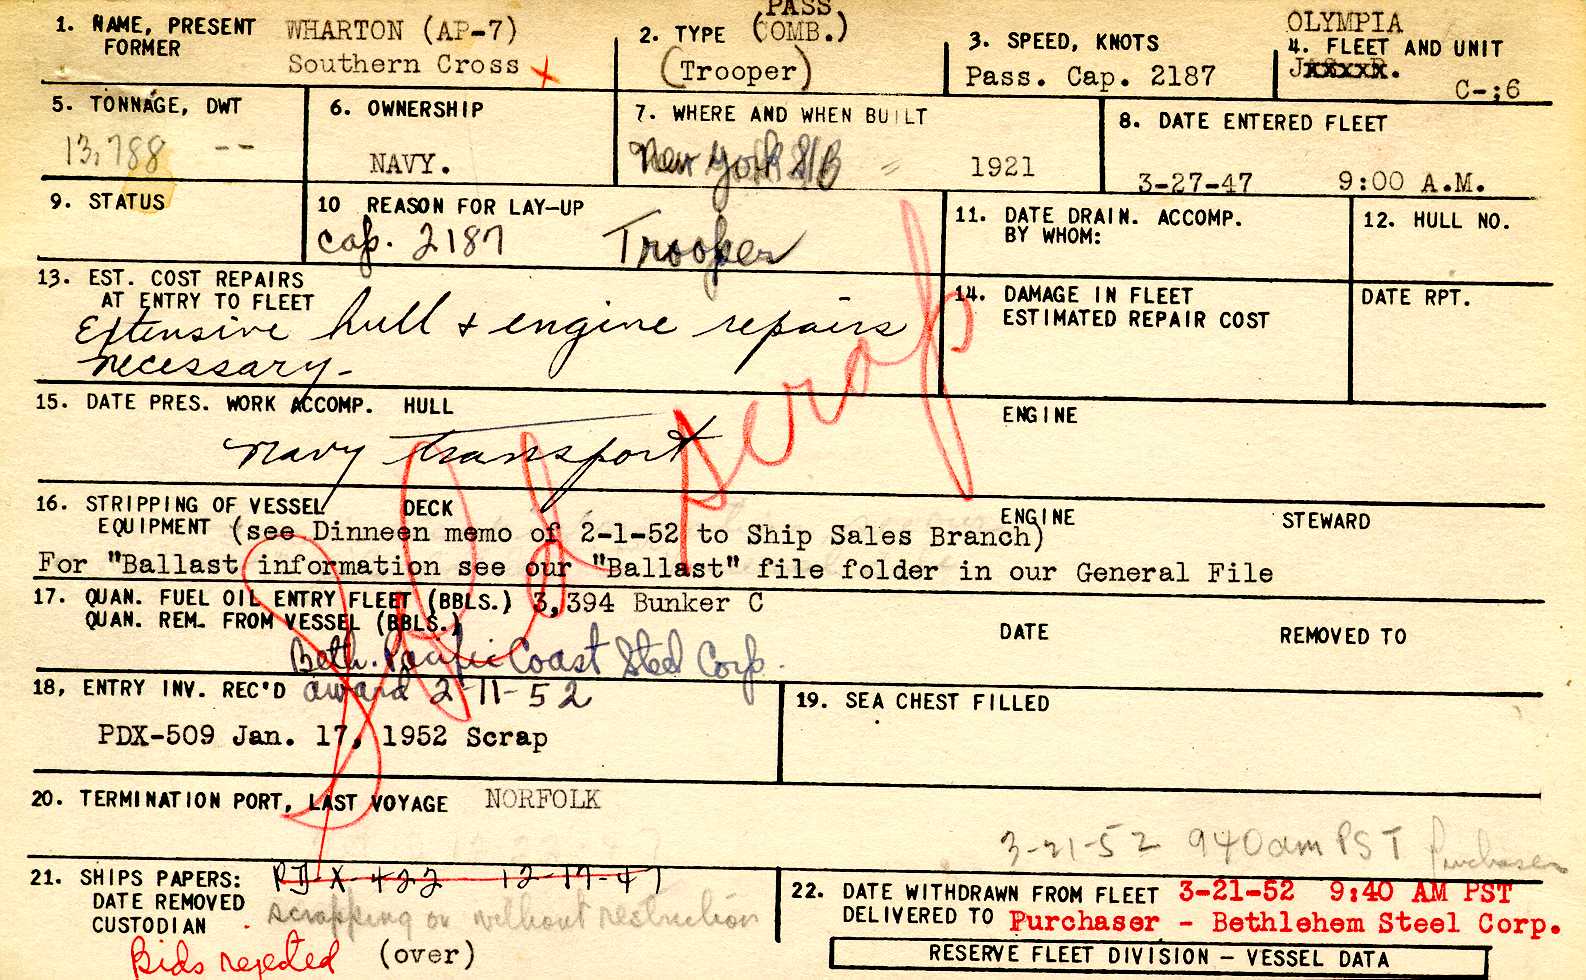 PASS
1. NAME, PRESENT WHARTON (AP-7) 2. TYPE (COMB.) 3. SPEED, KNOTS OLYMPIA
FORMER Southern Cross (Trooper) Pass. Cap. 2187 4. FLEET AND UNIT
C-;6
5. TONNAGE, DWT 6. OWNERSHIP 7. WHERE AND WHEN BUILT 8. DATE ENTERED FLEET
13,788 -- NAVY. New York S/B 1921 3-27-47 9:00 A.M.
9. STATUS 10 REASON FOR LAY-UP 11. DATE DRAIN. ACCOMP. 12. HULL NO.
cap. 2187 Trooper BY WHOM:
13. EST. COST REPAIRS 14. DAMAGE IN FLEET DATE RPT.
AT ENTRY TO FLEET ESTIMATED REPAIR COST
Extensive hull & engine repairs
necessary-
15. DATE PRES. WORK ACCOMP. HULL ENGINE
Navy transport
Sold scrap
16. STRIPPING OF VESSEL DECK ENGINE STEWARD
EQUIPMENT (see Dinneen memo of 2-1-52 to Ship Sales Branch)
For "Ballast information see our "Ballast" file folder in our General File
17. QUAN. FUEL OIL ENTRY FLEET (BBLS.) 3,394 Bunker C
QUAN. REM. FROM VESSEL (BBLS.) DATE REMOVED TO
Beth. Pacific Coast Steel Corp.
18, ENTRY INV. REC'D award 2-11-52 19. SEA CHEST FILLED
PDX-509 Jan. 17, 1952 Scrap
20. TERMINATION PORT, LAST VOYAGE NORFOLK
3-21-52 940am PST Purchaser
21. SHIPS PAPERS: PD-X-422 12-17-47 22. DATE WITHDRAWN FROM FLEET 3-21-52 9:40 AM PST
DATE REMOVED scrapping on without restriction DELIVERED TO Purchaser - Bethlehem Steel Corp.
CUSTODIAN
Bids rejected (over) RESERVE FLEET DIVISION - VESSEL DATA